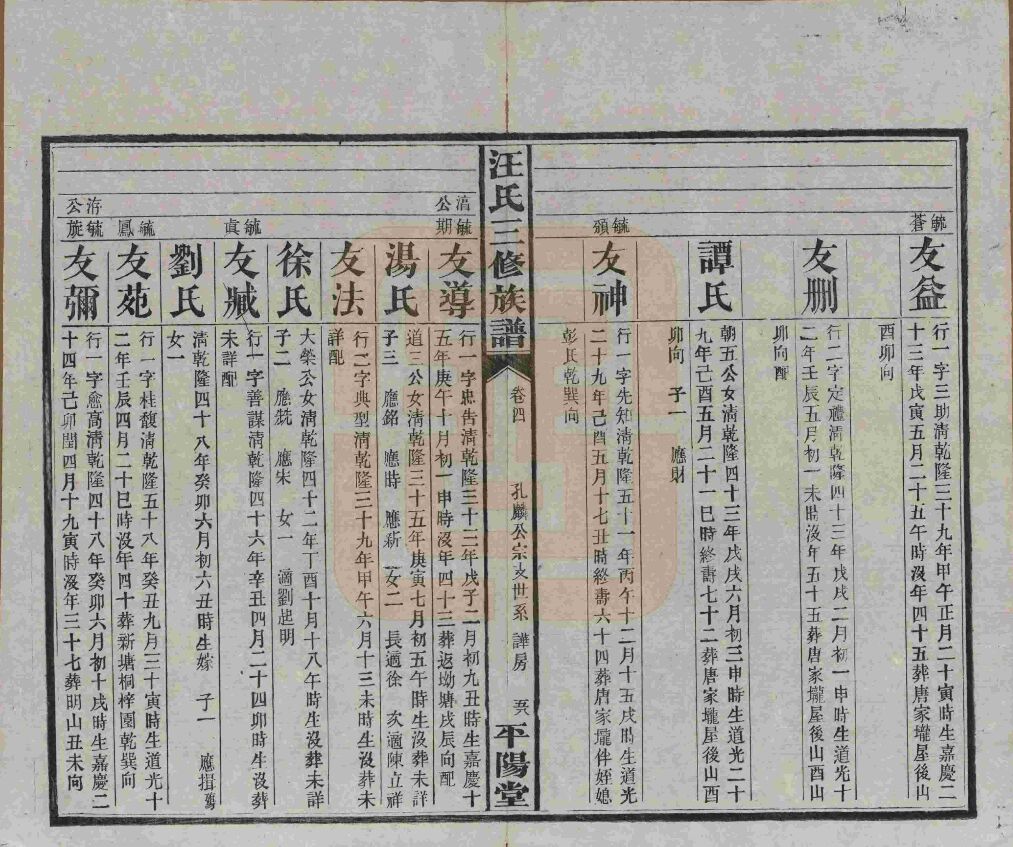 毓蒼
友益
行一字三助清乾隆三十九年甲午正月二十寅時生嘉慶二
十三年戊寅五月二十五午時沒年四十五葬唐家壠屋後山
酉卯向
友刪
行二字定禮清乾隆四十三年戊戌二月初一申時生道光十
二年壬辰五月初一未時沒年五十五葬唐家壠屋後山酉山
卯向配
譚氏
朝五公女清乾隆四十三年戊戌六月初三申時生道光二十
九年己酉五月二十一巳時終壽七十二葬唐家壠屋後山酉
卯向 子一 應財
毓頎
友神
行一字先知清乾隆五十一年丙午十二月十五戌時生道光
二十九年己酉五月十七丑時終壽六十四葬唐家壠伴姪媳
彭氏乾巽向
汪氏三修族譜
卷四
孔麟公宗支世系 譁房
平陽堂
公
毓期
友導
行一字忠告清乾隆三十三年戊子二月初九丑時生嘉慶十
五年庚午十月初一申時沒年四十三葬返坳塘戌辰向配
湯氏
道三公女清乾隆三十五年庚寅七月初五午時生沒葬未詳
子三 應銘 應時 應新 女二 長適徐 次適陳立祥
友法
行二字典型清乾隆三十九年甲午六月十三未時生沒葬未
詳配
徐氏
大榮公女清乾隆四十二年丁酉十月十八午時生沒葬未詳
子二 應兟 應宋 女一 適劉起明
毓眞
友臧
行一字善謀清乾隆四十六年辛丑四月二十四卯時生沒葬
未詳配
劉氏
清乾隆四十八年癸卯六月初六丑時生嫁 子一 應揖
女一
毓鳳
友苑
行一字桂馥清乾隆五十八年癸丑九月三十寅時生道光十
二年壬辰四月二十巳時沒年四十葬新塘桐梓園乾巽向
洊公
毓旋
友彌
行一字愈高清乾隆四十八年癸卯六月初十戌時生嘉慶二
十四年己卯閏四月十九寅時沒年三十七葬明山丑未向